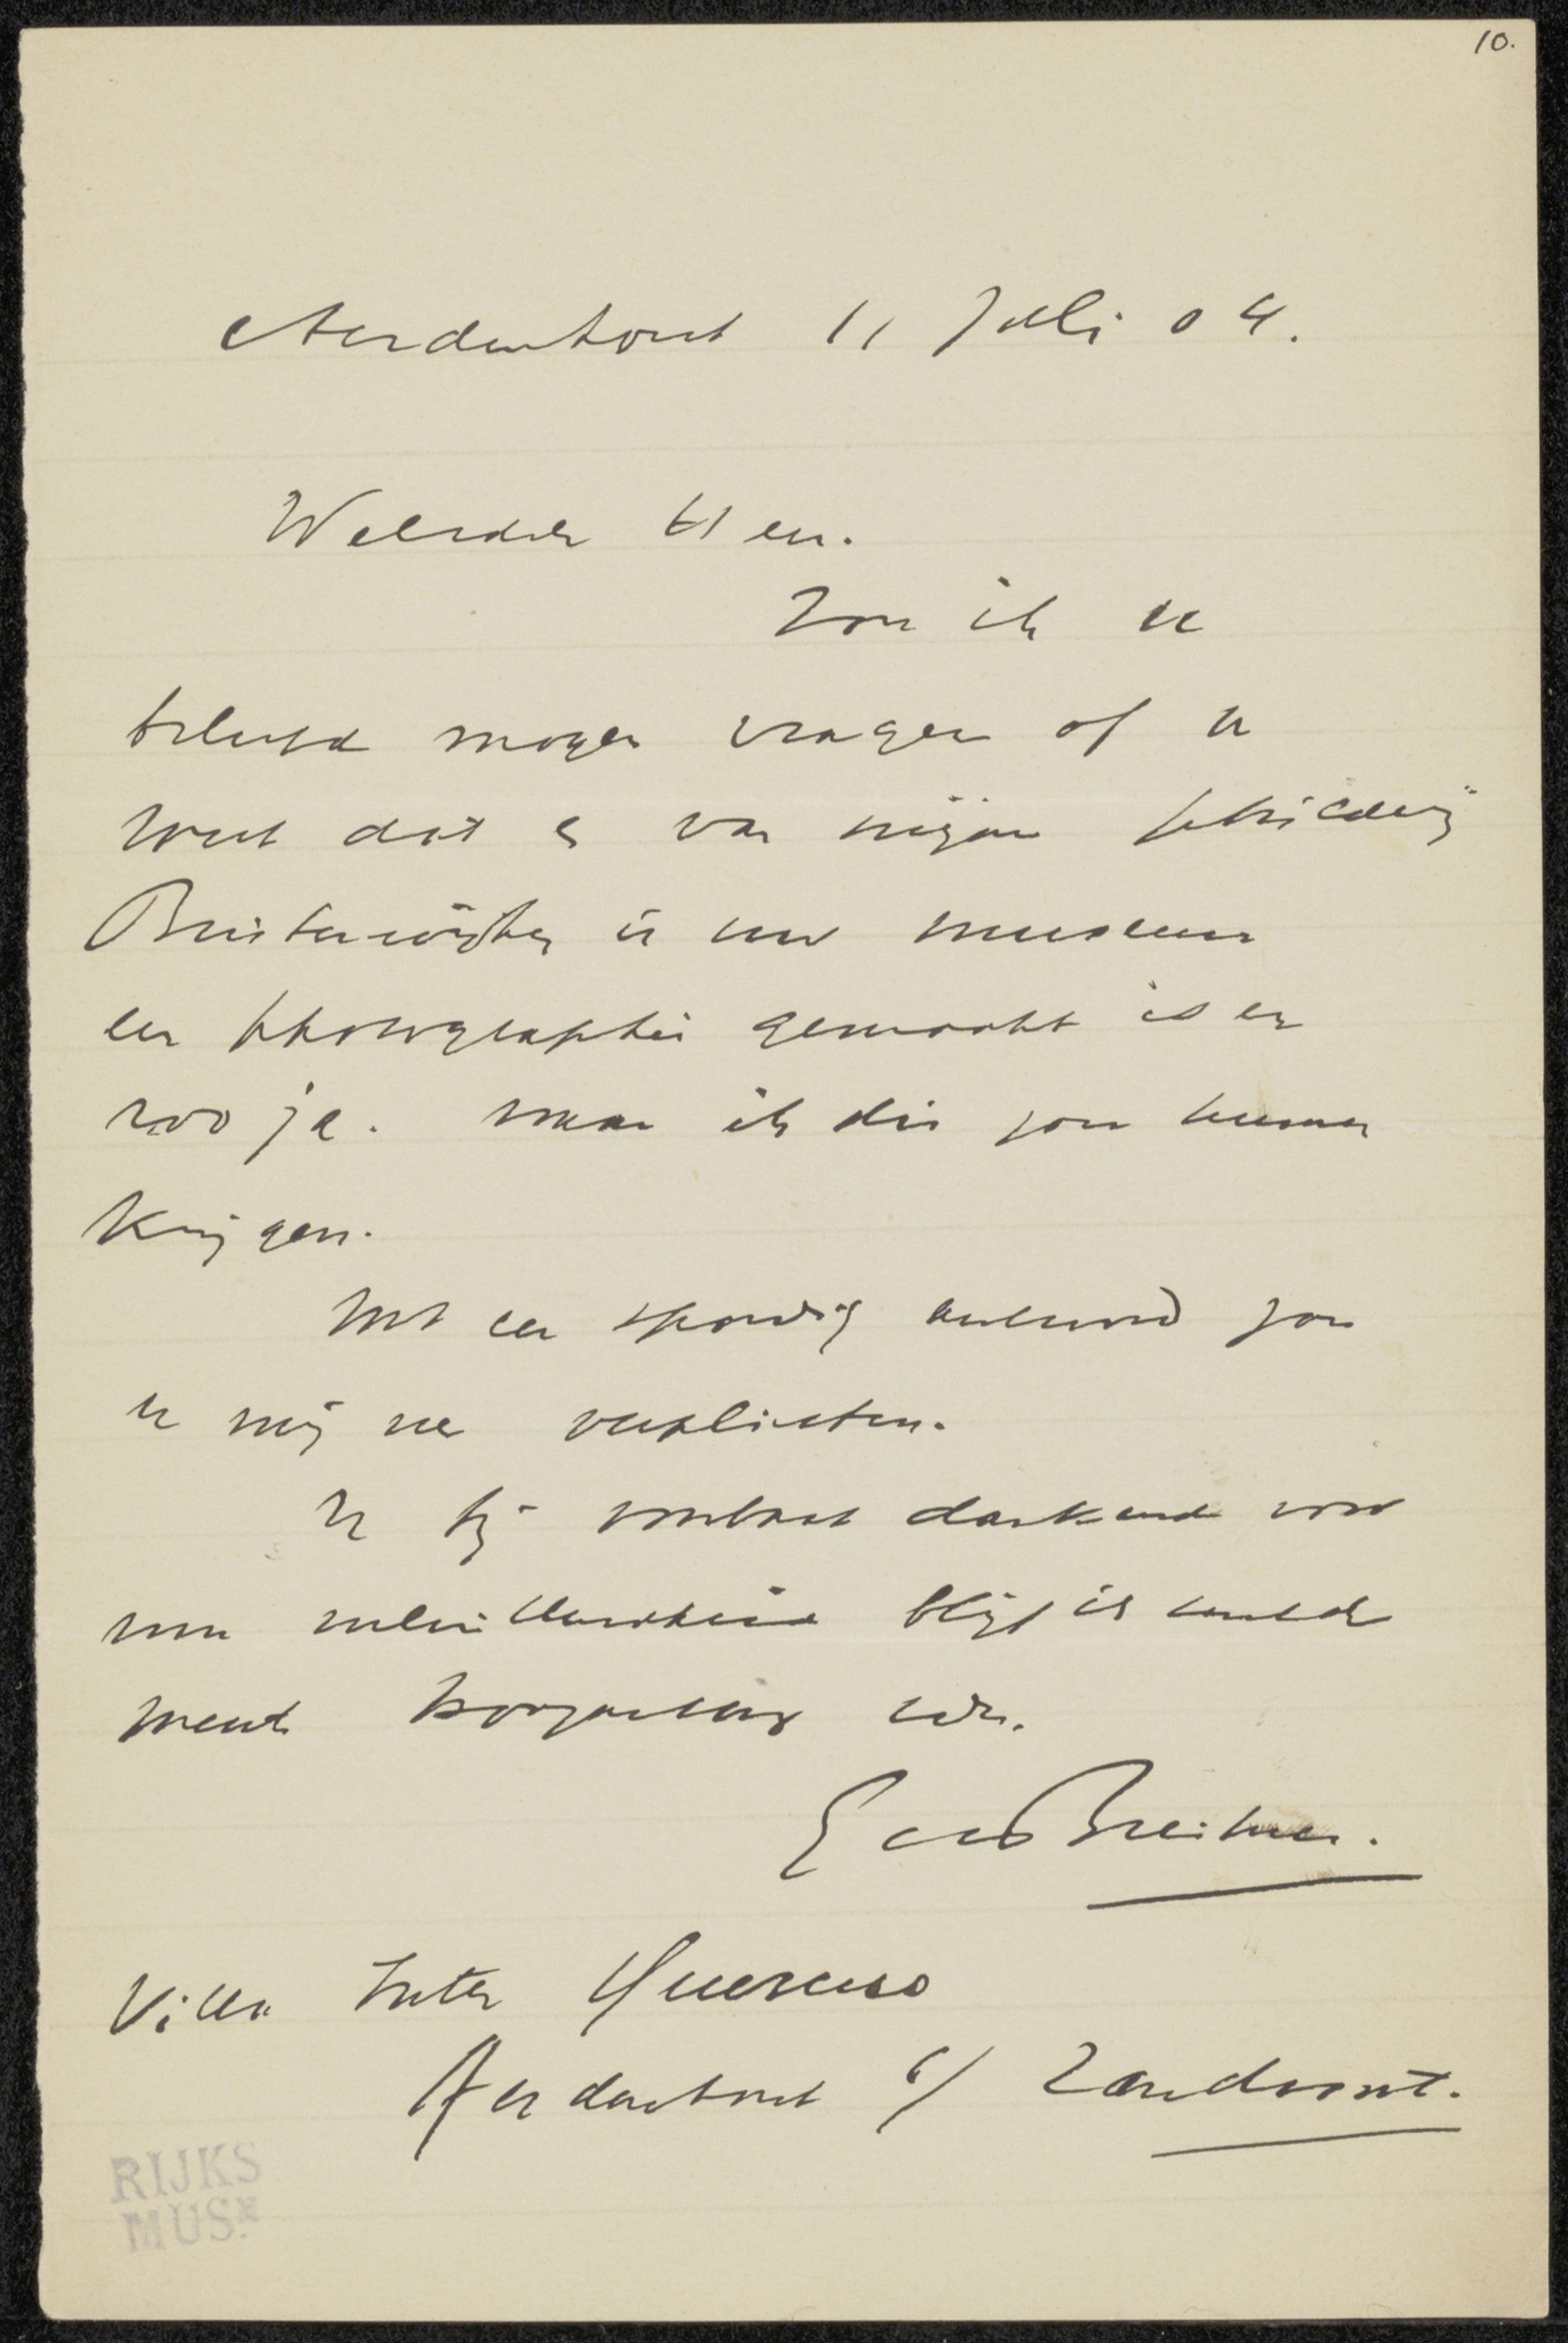 10.
Aerdenhout 11 Juli 04.
Weledele Heer.
Zou ik u
beleefd mogen vragen of u
weet dat er van mijn schilderij
Buitenwijken in uw museum
een photographie gemaakt is en
zoo ja. waar ik die zou kunnen
krijgen.
Met een spoedig antwoord zou
u mij zeer verplichten.
U bij voorbaat dankend voor
uw welwillendheid blijf ik
met hoogachting
Breitner.
Villa Inter Quercus
Aerdenhout b/ Zandvoort.
RIJKS
MUS.M